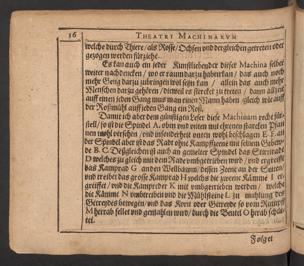 16 THEATRI MACHINARVM
welche durch Thiere/ als Rosse/ Ochsen und dergleichen getreten oder
gezogen werden fürziehe.
Es kan auch ein jeder Kunstliebender dieser Machina selber
weiter nachdencken/ wo er raum darzu haben kan/ das auch noch
mehr Geng darzu zubringen wol seyn kan/ allein das auch mehr
Menschen darzu gehören/ dieweil es stercker zu treten/ dann allzeit
auff einen jeden Gang mus man einen Mann haben gleich wie auff
der Roßmühl auff jeden Gang ein Roß.
Damit ich aber dem günstigen Leser diese Machinam recht für-
stell/ so ist die Spindel A. oben und unten mit eysernen starcken Pfan-
nen wohl versehen/ und insonderheit unten wohl
der Spindel aber ist das Rad ohne Kampff
B C. Deßgleichen ist auch an gemelter Spindel das Stirnrad
D welches zu gleich mit dem Rade umbgetrieben wird/ und ergreifft
das Kamprad G an der Wellbaum/ dessen
und treibet das grosse Kamprad H welchs die zweene Kämme I er-
greiffet/ und die Kampreder K mit umbgetrieben werden/ welche
die Kämme N umbtreiben und die Mühlsteine L. zu mahlung des
Getreydes bewegen/ und das Korn oder Getreyde so vom Rumpff
M herab fellet und gemahlen wird/ durch die Beutel O herab schüt-
tet.
Folget